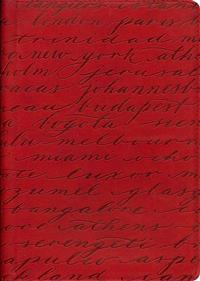 london paris
trinidad
new york athe
holm jerusa
racas johannesb
eau budapest
bogota sien
melbourn
miami
ate luxor m
zumel glasg
bangalore
ood athens
serengeti
apulco aspe
kland ican